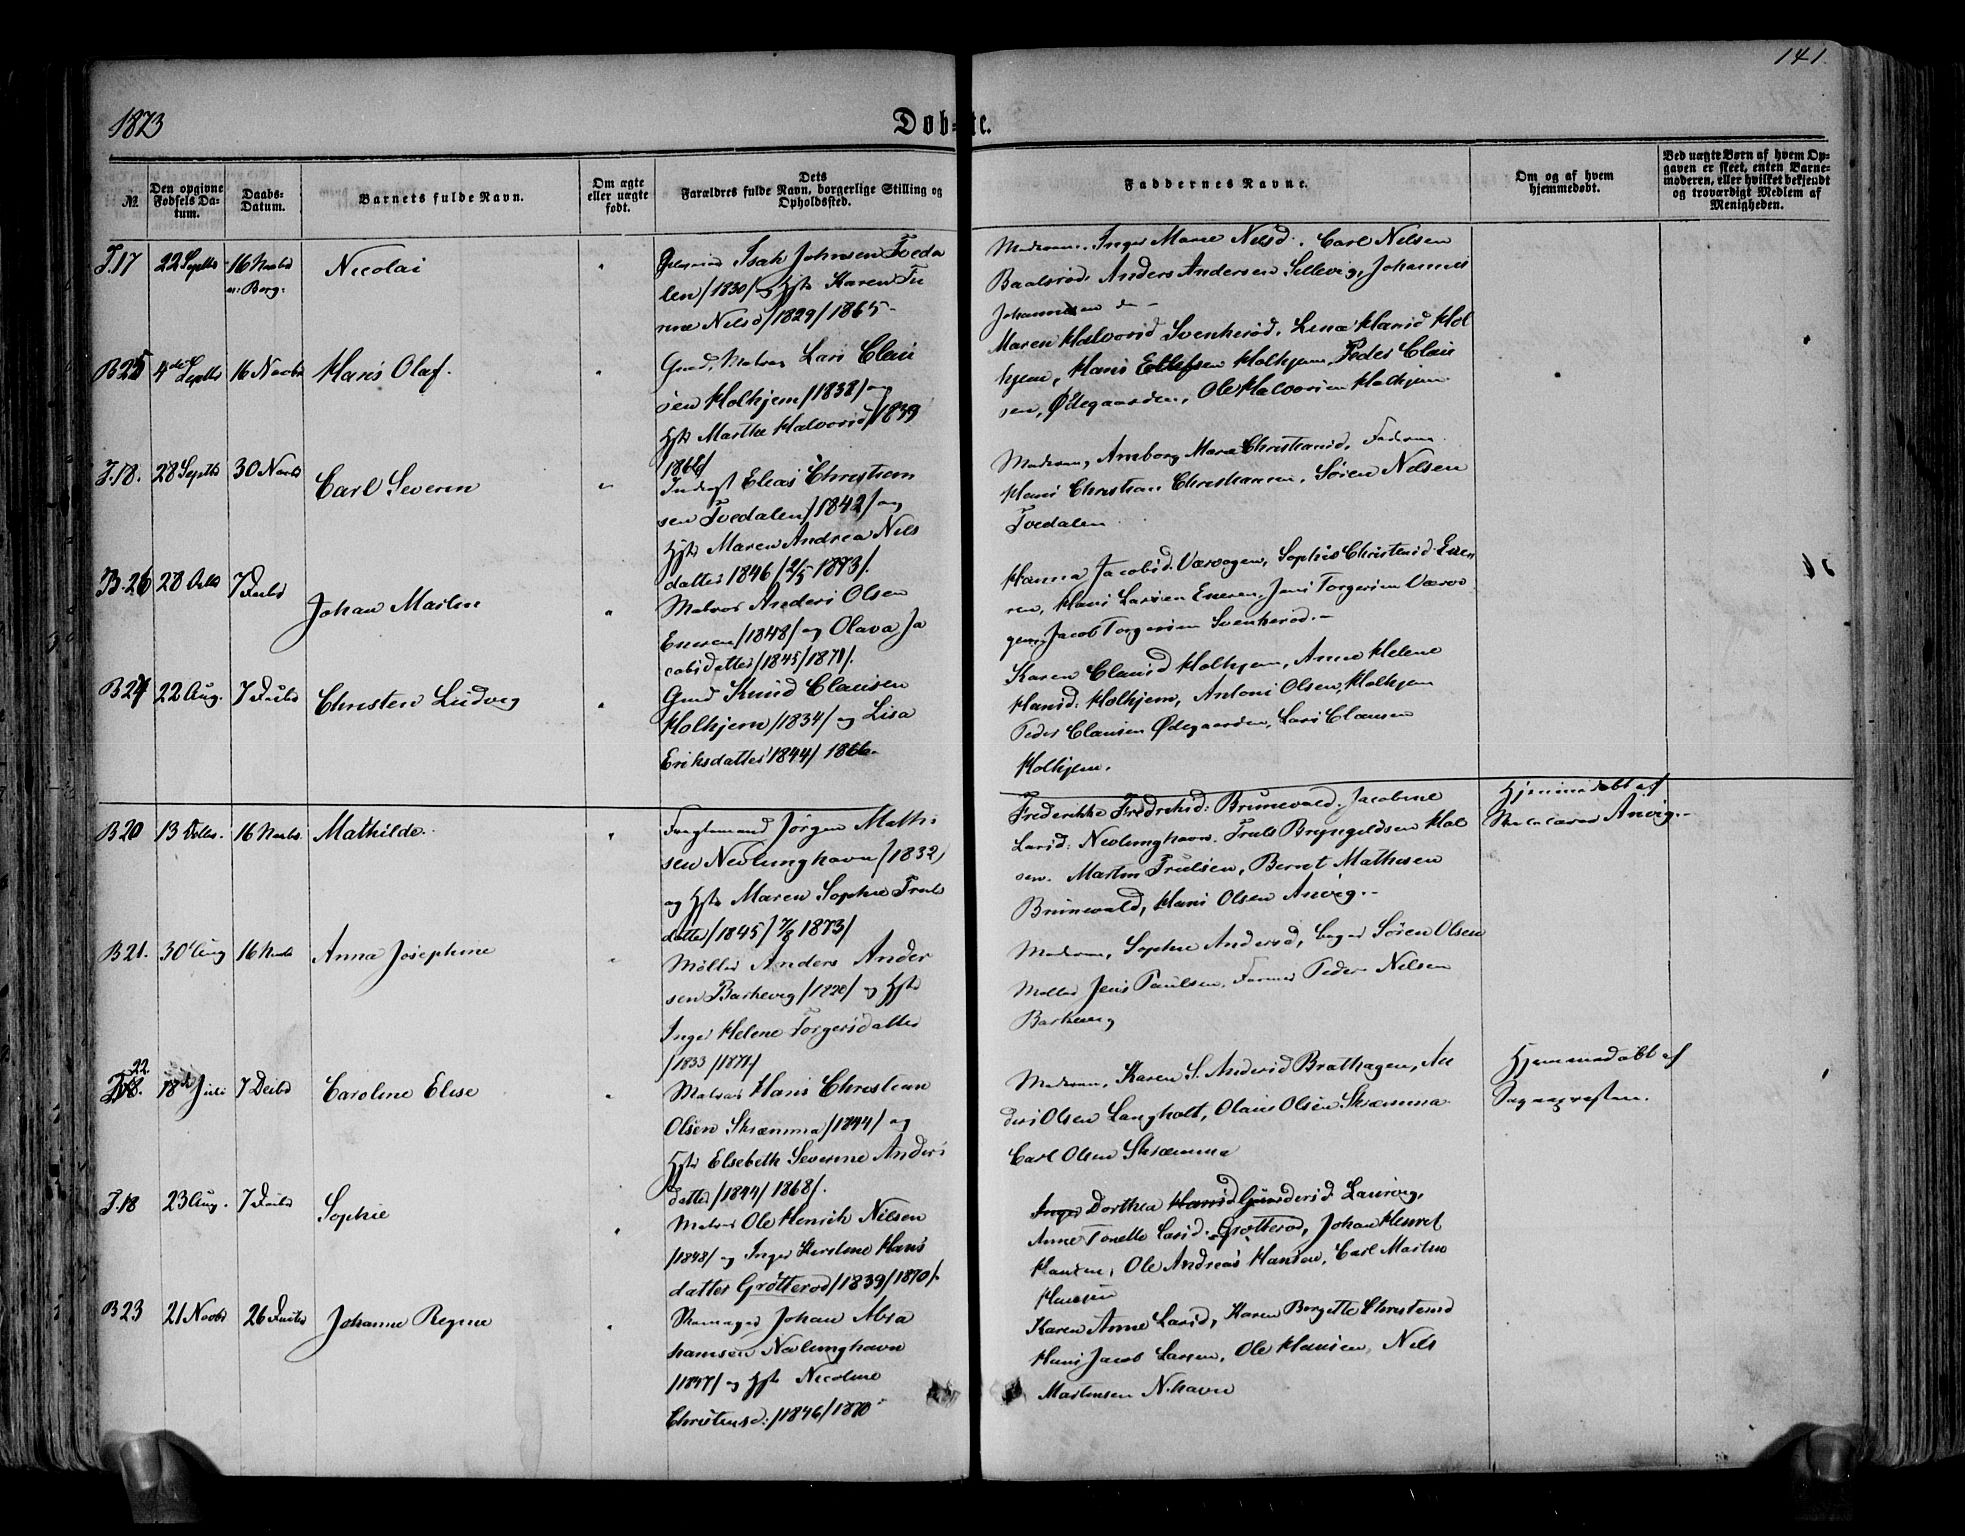 141.
1873
Døb-te.
№
Den opgivne Fødsels Datum.
Daabs-Datum.
Barnets fulde Navn.
Om ægte eller uægte født.
Dets Forældres fulde Navn, borgerlige Stilling og Opholdssted.
Faddernes Navne.
Om og af hvem hjemmedøbt.
Ved uægte Børn af hvem Opgaven er skeet, enten Barnemoderen, eller hvilket bekjendt og troværdigt Medlem af Menigheden.
T.17 22 Septbr 16 Novbr Nicolai
Isak Johnsen Tveda
len /1830/ og Hst Karen Tri
ne Nelsd /1829/ 1865
Moderen, Inger Marie Nelsd. Carl Nelsen
Baalsrød. Anders Andersen Sillevig, Johannes
Johannesen
B 25 4de Septbr 16 Novbr Hans Olaf.
Gmd, Matros Lars Clau
sen Holhjem /1838/ og
Hst Marthe Halvorsd /1839
1866/
Maren Halvorsd Svenherød, Lena Hansd Hol
hjem, Hans Ellefsen Holhjem, Peder Clau
sen, Ødegaarden, Ole Halvorsen Holhjem
T.18. 28 Septbr 30 Novbr Carl Severin
Inderst Elias Christian
sen Tvedalen /1842/ og
Hst Maren Andrea Nils
datter 1846 / 2/5 1873/.
Moderen, Anborg Marie Christiansd, Faderen
Hans Christian Christiansen, Søren Nelsen
Tvedalen
B.26 28 Octbr 7 Decbr Johan Martin
Matros Anders Olsen
Enersen /1848/ og Olava Ja
cobsdatter /1845/1871/.
Hanna Jacobsd. Værvogen, Sophie Christensd Ener
ren, Hans Larsen Eneren, Jens Torgersen Værvo
gen, Jacob Torgersen Svenherød.
B 24 22 Aug. 7 Decbr Christen Ludvig
Gmd Knud Clausen
Holhjem /1834/ og Lisa
Eriksdatter 1844/ 1866
Karen Clausd Holhjem, Anne Helene
Hansd: Holhjem, Anton Olsen, Holhjem
Peder Clausen Ødegaarden, Lars Clausen
Holhjem.
B 20 13 Octbr. 16 Novbr. Mathilde.
Fragtemand Jørgen Mathi
sen Nevlunghavn /1832/
og Hst Maren Sophie Truls
datter /1845/ 7/8 1873/
Frederikke Fredriksd: Brunevald. Jacobine
Larsd: Nevlunghavn. Truls Bryngeldsen Hol
sen. Martin Trulsen, Bernt Mathesen
Brunevald, Hans Olsen Anvig.
Hjemmedøbt af
Skolelærer Anvig.
B 21. 30 Aug 16 Novbr Anna Josephine
Møller Anders Ander
sen Barkevig /1820/ og Hst
Inger Helene Torgersdatter
/1833/1871/
Moderen, Sophie Andersd, Søren Olsen
Møller Jens Paulsen, Peder Nelsen
Barkevig
22. 18de Juli 7 Decbr Caroline Elise
Matros Hans Christian
Olsen Skræmma /1844/ og
Hst Elsebeth Severine Anders
datter /1844/ 1868/.
Moderen, Karen S. Andersd Brathagen, An
ders Olsen Langholt, Olaus Olsen Skræmma
Carl Olsen Skræmma
Hjemmedøbt af
Sognepresten.
T.18 23 Aug. 7 Decbr Sophie
Matros Ole Henrik Nilsen
/1848/ og Inger Kirstine Hans
datter Grøtterød /1839/1870/.
Inger Dorthea Hansd Gundersd. Laurvig,
Anne Tonette Larsd. Grøtterød, Johan Henrik
Hansen, Ole Andreas Hansen, Carl Martin
Hansen
B 23 21 Novbr 26 Decbr Johanne Regine
Skomager Johan Abra
hamsen Nevlunghavn
/1847/ og Hst Nicoline
Christensd: /1846/1870
Karen Anne Larsd, Karen Bergette Christensd
Hans Jacob Larsen, Ole Hansen, Nils
Martinsen N.havn